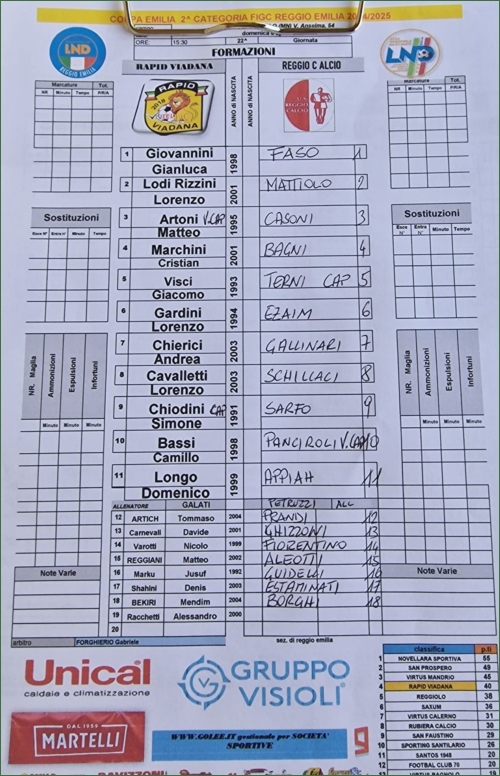 COPPA EMILIA 2^ CATEGORIA FIGC REGGIO EMILIA 2024/2025
(MN) V. Anselma, 64
ORE: 15:30 22^ Giornata
FORMAZIONI
LND
REGGIO EMILIA
RAPID VIADANA
ANNO di NASCITA
REGGIO CALCIO
ANNO di NASCITA
LND
RAPID
2018
VIADANA
REGGIO
CALCIO
Marcature Tot.
NR Minuto Tempo P/R/A
Marcature Tot.
NR Minuto Tempo P/R/A
1 Giovannini Gianluca 1998 FASO 1
2 Lodi Rizzini Lorenzo 2001 MATTIOLO 2
3 Artoni V.CAP Matteo 1995 CASONI 3
4 Marchini Cristian 2001 BAGNI 4
5 Visci Giacomo 1993 TERNI CAP 5
6 Gardini Lorenzo 1994 EZAIM 6
7 Chierici Andrea 2003 GALLINARI 7
8 Cavalletti Lorenzo 2003 SCHILLACI 8
9 Chiodini CAP Simone 1991 SARFO 9
10 Bassi Camillo 1998 PANCIROLI V.CAP 10
11 Longo Domenico 1999 APPIAH 11
Sostituzioni
Esce N° Entra n° Minuto Tempo
Sostituzioni
Esce N° Entra N° Minuto Tempo
NR. Maglia Ammonizioni Espulsioni Infortuni
Minuto Minuto Minuto
NR. Maglia Ammonizioni Espulsioni Infortuni
Minuto Minuto Minuto
ALLENATORE GALATI PETRUZZI ALL
12 ARTICH Tommaso 2004 PRANDI 12
13 Carnevali Davide 2001 GHIZZONI 13
14 Varotti Nicolo 1999 FIORENTINO 14
15 REGGIANI Matteo 2002 ALEOTTI 15
16 Marku Jusuf 1982 GUIDELLI 16
17 Shahini Denis 2003 ESTAMINATI 17
18 BEKIRI Mendim 2004 BORGHI 18
19 Racchetti Alessandro 2000
20
Note Varie
Note Varie
arbitro FORGHIERIO Gabriele sez. di reggio emilia
Unical
caldaie e climatizzazione
GRUPPO
VISIOLI
DAL 1959
MARTELLI
WWW.GOLEE.IT gestionale per SOCIETA'
SPORTIVE
classifica p.ti
1 NOVELLARA SPORTIVA 55
2 SAN PROSPERO 49
3 VIRTUS MANDRIO 45
4 RAPID VIADANA 40
5 REGGIOLO 38
6 SAXUM 36
7 VIRTUS CALERNO 31
8 RUBIERA CALCIO 30
9 SAN FAUSTINO 29
10 SPORTING SANTILARIO 26
11 SANTOS 1948 20
12 FOOTBAL CLUB 70 20